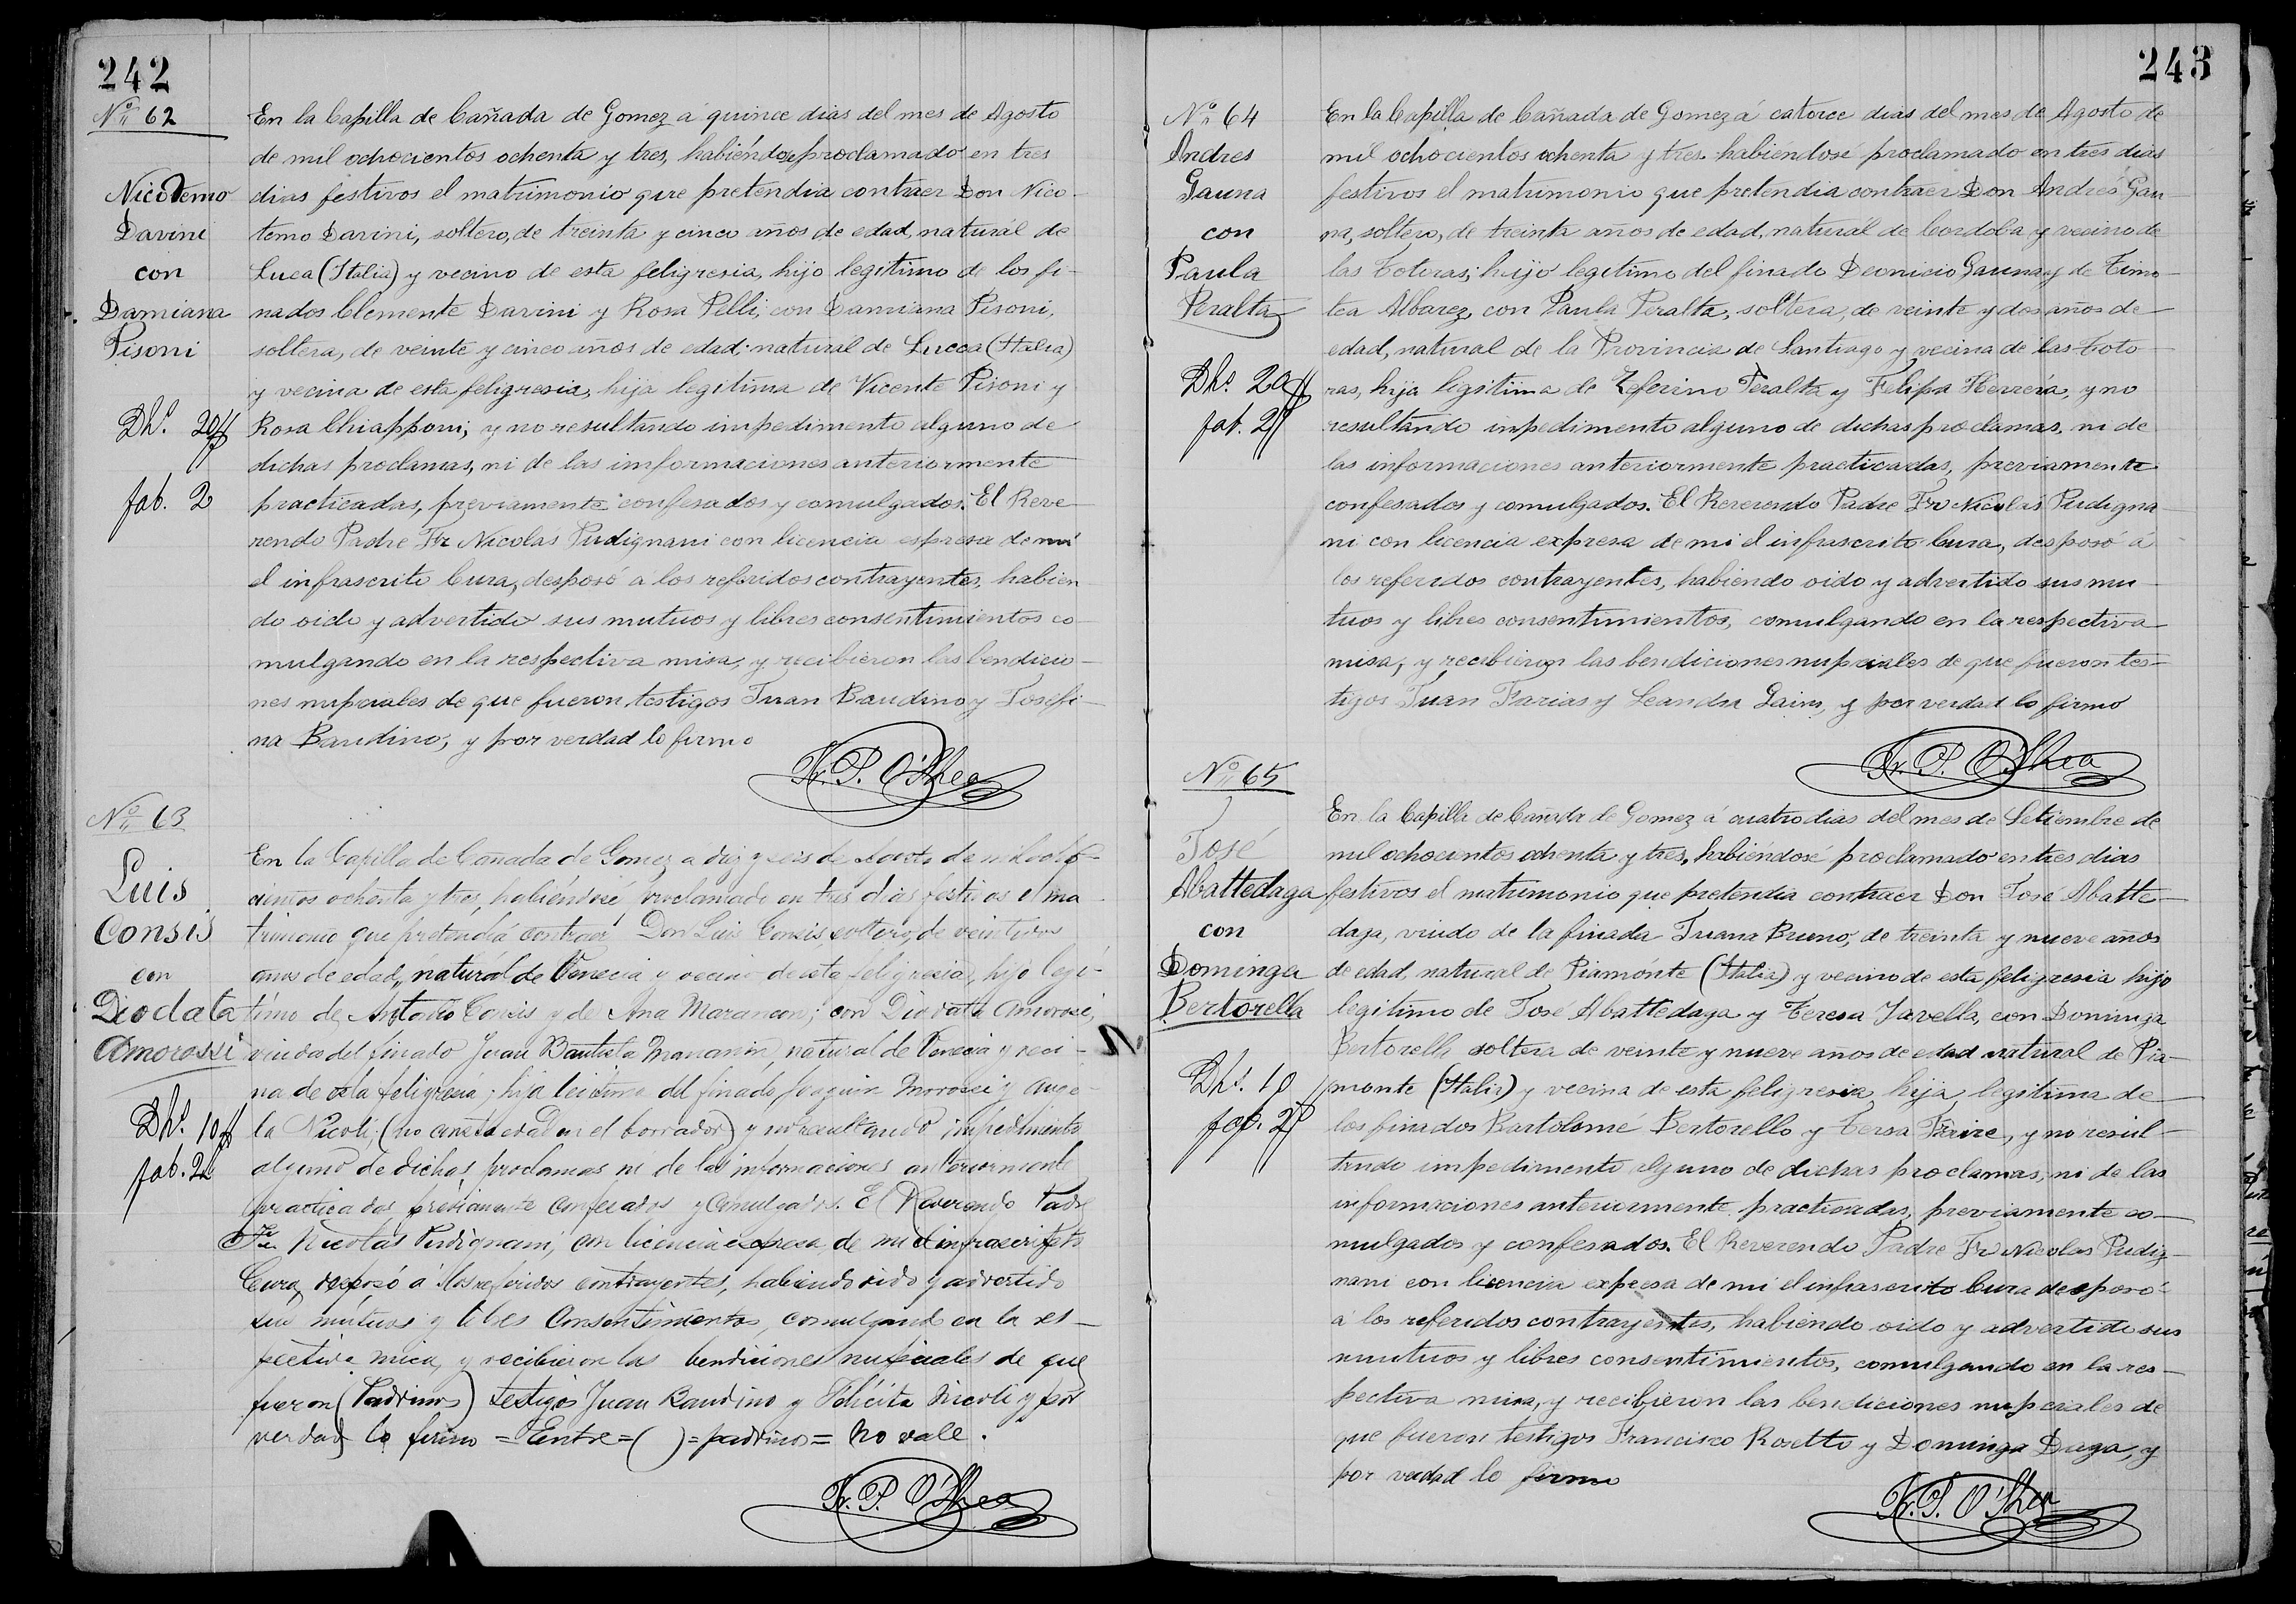 242
Nº 62
Nicodemo
Davini
con
Damiana
Pisoni
Dhs. 20ff
fab. 2
En la Capilla de Cañada de Gomez á quince dias del mes de Agosto
de mil ochocientos ochenta y tres, habiéndose proclamado en tres
dias festivos el matrimonio que pretendia contraer Don Nico-
temo Davini, soltero, de treinta y cinco años de edad, naturál de
Luca (Italia) y vecino de esta feligresia, hijo legitimo de los fi-
nados Clemente Davini y Rosa Pelli; con Damiana Pisoni,
soltera, de veinte y cinco años de edad; naturál de Lucca (Italia)
y vecina de esta feligresia, hija legitima de Vicente Pisoni y
Rosa Chiapponi; y no resultando impedimento alguno de
dichas proclamas, ni de las imformaciones anteriormente
practicadas, previamente confesados y comulgados. El Reve-
rendo Padre Fr Nicolás Pudignani con licencia espresa de mi
el infrascrito Cura, desposó a los referidos contrayentes, habien
do oido y advertido sus mutuos y libres consentimientos co-
mulgando en la respectiva misa, y recibieron las bendicio-
nes nupciales de que fueron testigos Juan Baudino y Josefi-
na Baudino, y por verdad lo firmo
Fr. P. O'Shea
Nº 63
Luis
Consis
con
Diodata
Amorossi
Dhs. 10ff
fab. 2
En la Capilla de Cañada de Gomez a diez y seis de Agosto de mil ocho-
cientos ochenta y tres, habiéndosé proclamado en tres dias festivos el ma-
trimonio que pretendiá contraer Don Luis Consis, soltero, de veintidos
anos de edad, naturál de Venecia y vecino de esta feligresia, hijo legi-
timo de Antonio Consis y de Ana Marancon; con Diodata Amorosi,
viuda del finado Juan Bautista Manarin, natural de Venecia y veci-
na de esta feligresia; hija lejitima del finado Joaquin Morossi y Ange-
la Nicoli; (no consta edad en el borrador) y no resultando impedimento
alguno de dichas proclamas ni de las informaciones anteriormente
practicadas previamente confesados y comulgados. El Reverendo Padre
Fr. Nicolás Pudignani, con licencia expresa de mi el infrascripto
Cura, desposó á los referidos contrayentes, habiendo oido y advertido
sus mútuos y libres consentimientos, comulgando en la res-
pectiva misa, y recibieron las bendiciones nupciales de que
fueron (Padrinos) testigos Juan Baudino y Felicita Nicoli y por
verdad lo firmo = Entre = ( ) = padrinos = No vale.
Fr. P. O'Shea
243
Nº 64
Andres
Gauna
con
Paula
Peralta
Dhs. 20ff
fab. 2ff
En la Capilla de Cañada de Gomez á catorce dias del mes de Agosto de
mil ochocientos ochenta y tres habiéndosé proclamado en tres dias
festivos el matrimonio que pretendia contraer Don Andrés Gau-
na, soltero, de treinta años de edad, naturál de Cordoba y vecino de
las Totoras; hijo legitimo del finado Deonicio Gauna y de Timo-
tea Albarez, con Paula Peralta, soltera, de veinte y dos años de
edad, natural de la Provincia de Santiago y vecina de las Toto-
ras, hija legitima de Zeferino Peralta y Felipa Herrera, y no
resultando impedimento alguno de dichas proclamas, ni de
las informaciones anteriormente practicadas, previamente
confesados y comulgados. El Reverendo Padre Fr Nicolás Pudigna-
ni con licencia expresa de mi el infrascrito Cura, desposó á
los referidos contrayentes, habiendo oido y advertido sus mu-
tuos y libres consentimientos, comulgando en la respectiva
misa, y recibieron las bendiciones nupciales de que fueron tes-
tigos Juan Farias y Leandra, y por verdad lo firmo
Fr. P. O'Shea
Nº 65
José
Abattedaga
con
Dominga
Bertorella
Dhs. 10
fab. 2
En la Capilla de Cañada de Gomez á cuatro dias del mes de Setiembre de
mil ochocientos ochenta y tres, habiéndosé proclamado en tres dias
festivos el matrimonio que pretendia contraer Don José Abatte-
daga, viudo de la finada Juana Bruno, de treinta y nueve años
de edad, natural de Piamónte (Italia) y vecino de esta feligresia hijo
legitimo de José Abattedaga y Teresa Javella, con Dominga
Bertorella soltera de veinte y nueve anos de edad natural de Pia-
monte (Italia) y vecina de esta feligresia hija legitima de
los finados Bartolomé Bertorello y Tersa Fraire, y no resul-
tando impedimento alguno de dichas proclamas, ni de las
informaciones anteriormente practicadas, previamente co-
mulgados y confesados. El Reverendo Padre Fr Nicolas Pudig-
nani con licencia expresa de mi el infrascrito Cura desposó
á los referidos contrayentes, habiendo oido y advertido sus
mutuos y libres consentimientos, comulgando en la res-
pectiva misa, y recibieron las bendiciones nupciales de
que fueron testigos Francisco Rosetto y Dominga Daga, y
por verdad lo firmo
Fr. P. O'Shea